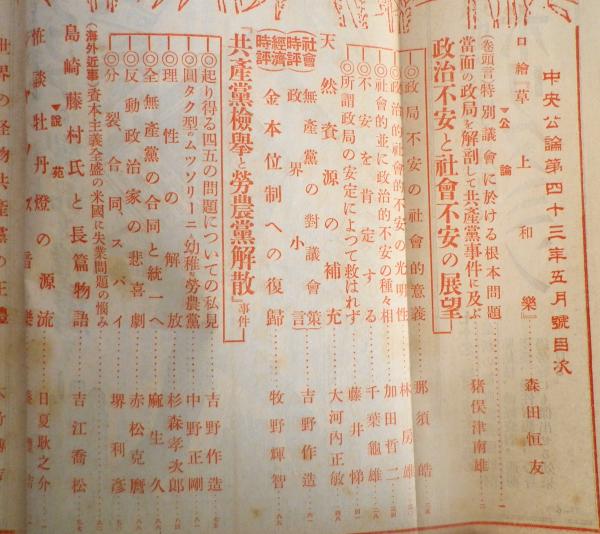 中央公論第四十三年五月號目次
口繪『草上和樂』 森田恒友
▼公論
(卷頭言)特別議會に於ける根本問題
當面の政局を解剖して共產黨事件に及ぶ 猪俣津南雄
政治不安と社會不安の展望
◎政局不安の社會的意義 那須皓
◎政治的社會的不安の光明性 林房雄
◎社會的並に政治的不安の種々相 加田哲二
◎不安を肯定する 千葉龜雄
◎所謂政局の安定によつて救はれず 藤井悌
天然資源の補充 大河內正敏
(社會時評)無產黨の對議會策
政界小言 吉野作造
(經濟時評)金本位制への復歸 牧野輝智
『共產黨檢擧と勞農黨解散』事件
◎起り得る四五の問題についての私見 吉野作造
◎圓タク型のムツソリーニと幼稚勞農黨 中野正剛
◎理性の解放 杉森孝次郎
◎全無產黨の合同と統一へ 麻生久
◎反動政治家の悲喜劇 赤松克麿
◎分裂、合同、スパイ 堺利彥
(海外近事)資本主義全盛の米國に失業問題の惱み
島崎藤村氏と長篇物語 吉江喬松
▼說苑
怪談牡丹燈の源流 日夏耿之介
世界の怪物共產黨の正體